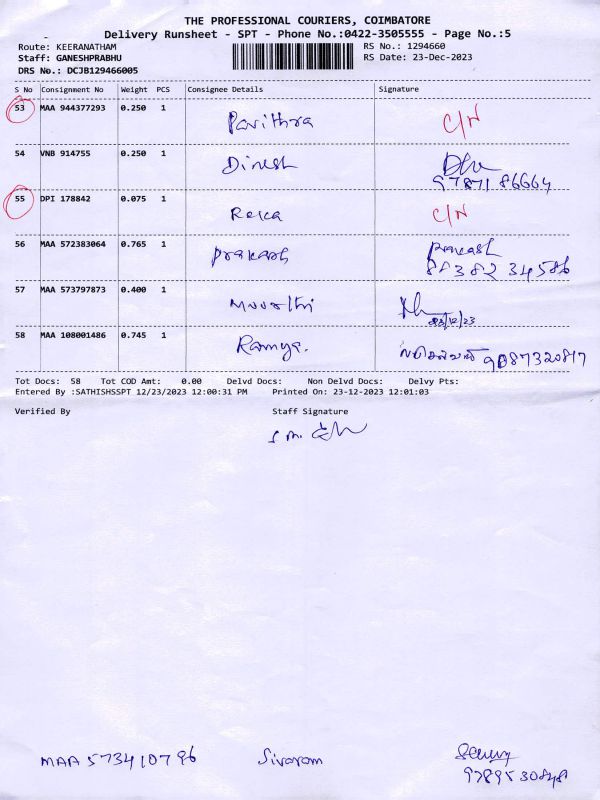 THE PROFESSIONAL COURIERS, COIMBATORE
Delivery Runsheet - SPT - Phone No.:0422-3505555 - Page No.:5
Route: KEERANATHAM RS No.: 1294660
Staff: GANESHPRABHU RS Date: 23-Dec-2023
DRS No.: DCJB129466005
S No Consignment No Weight PCS Consignee Details Signature
53 MAA 944377293 0.250 1 Pavithra C/N
54 VNB 914755 0.250 1 Dinesh
9787186664
55 DPI 178842 0.075 1 Reka C/N
56 MAA 572383064 0.765 1 Prakash Prakash
88382 34586
57 MAA 573797873 0.400 1 Moorthi
23/12/23
58 MAA 108001486 0.745 1 Ramya. 9087320817
Tot Docs: 58 Tot COD Amt: 0.00 Delvd Docs: Non Delvd Docs: Delvy Pts:
Entered By :SATHISHSSPT 12/23/2023 12:00:31 PM Printed On: 23-12-2023 12:01:03
Verified By Staff Signature
MAA 573410796 Sivaram
9789530848